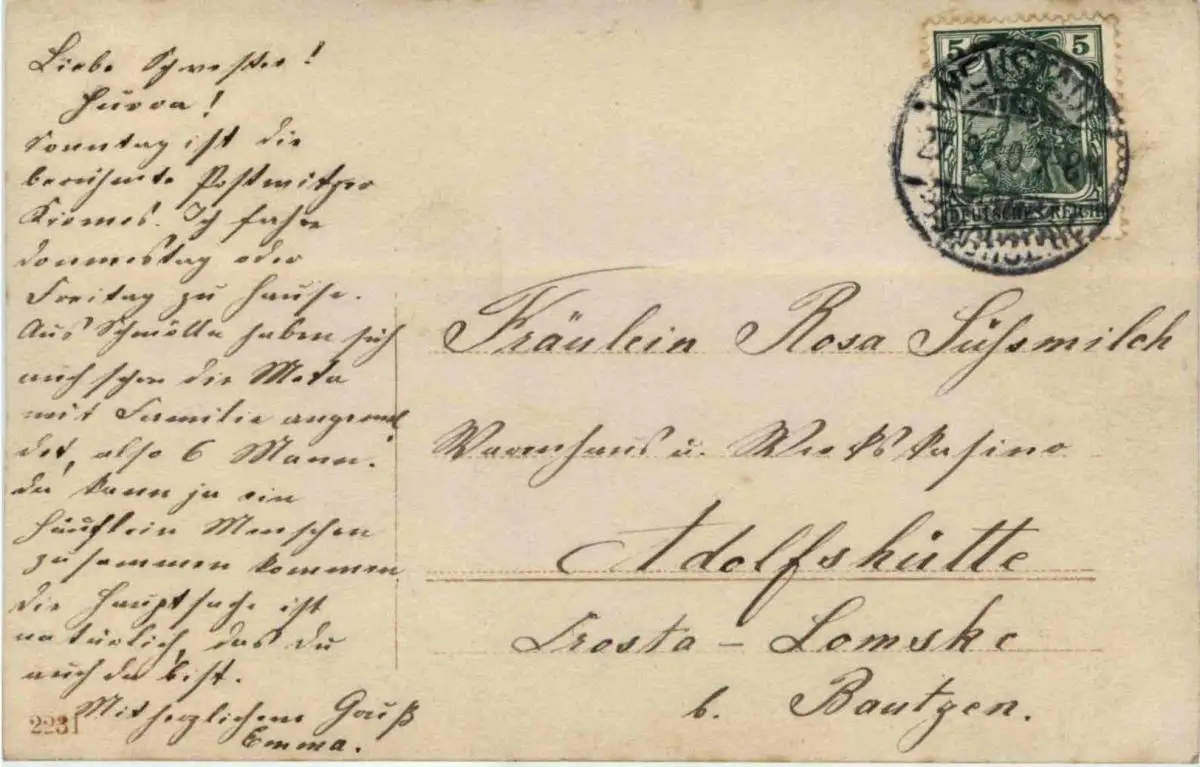 Liebe Schwester!
Hurra!
Sonntag ist die
berühmte Postwitzer
Kirmes. Ich fahre
Donnerstag oder
Freitag zu Hause.
Aus Schmölln haben sich
auch schon die Meta
mit Familie angemel
det, also 6 Mann.
da kann ja ein
Häuflein Menschen
zusammen kommen
die Hauptsache ist
natürlich, das du
auch da bist.
Mit herzlichem Gruß
Emma.
2231
5 5
DEUTSCHES REICH
Fräulein Rosa Süßmilch
Warenhaus u. Werkskasino
Adolfshütte
Crosta - Lomske
b. Bautzen.